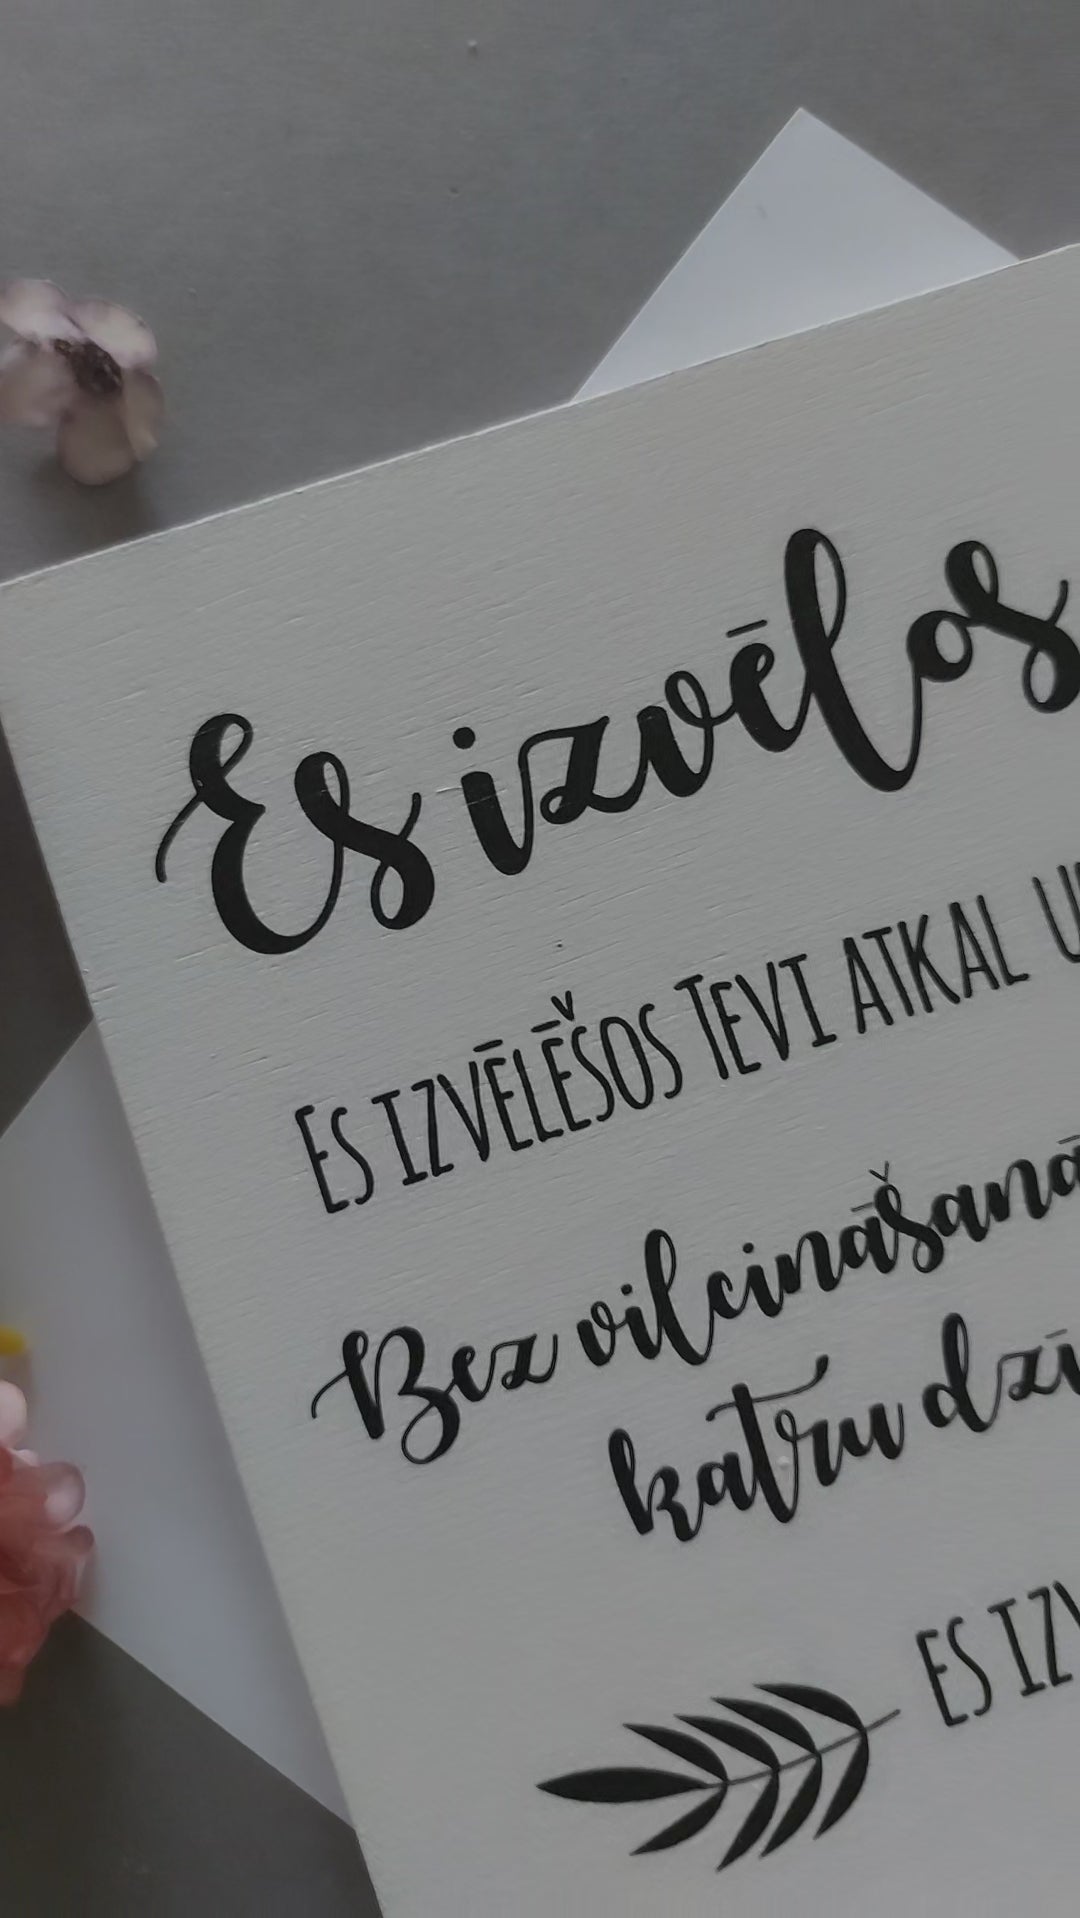 Es izvēlos
ES IZVĒLĒŠOS TEVI ATKAL U
Bez vilcināšanā
katru dzī
ES IZV